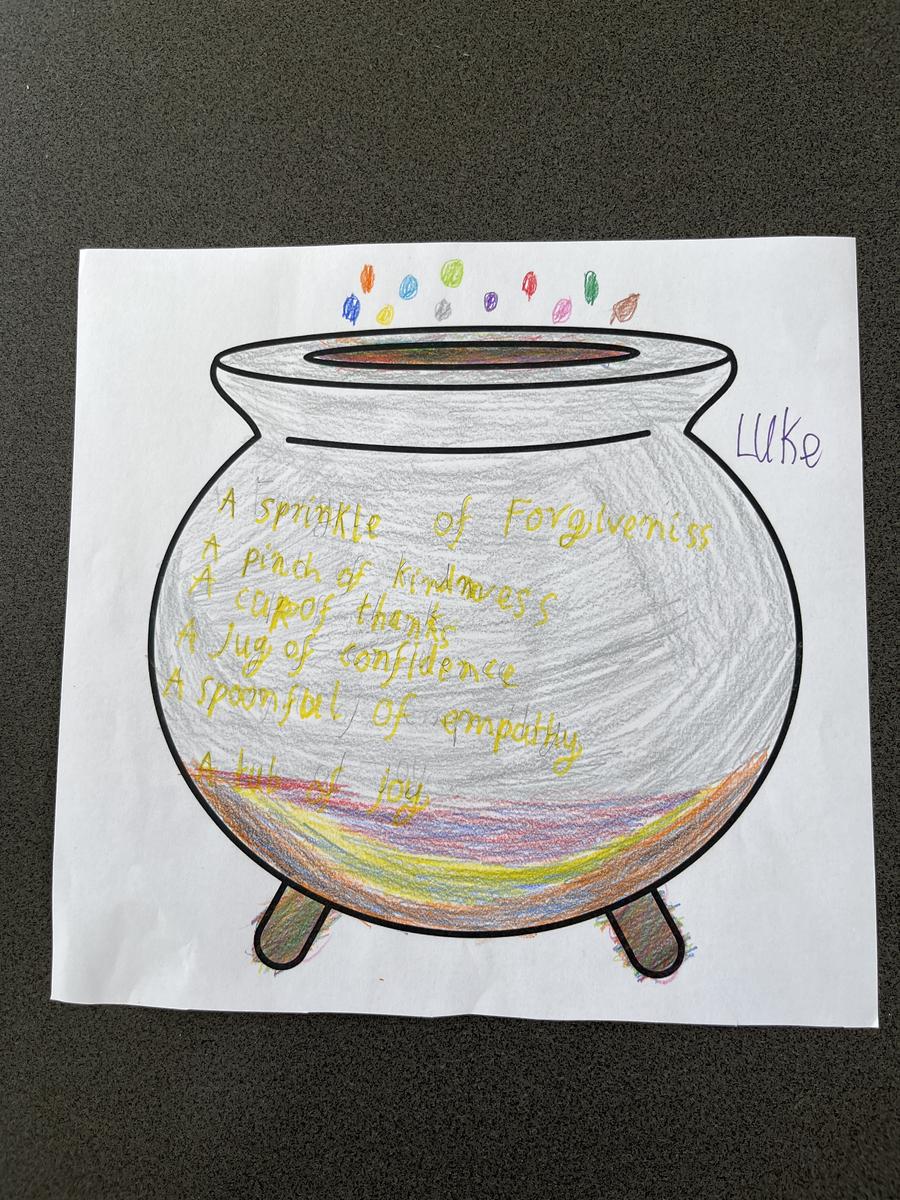 Luke
A sprinkle of Forgiveniss
A pinch of kindness
A cup of thanks
A Jug of confidence
A spoonful of empathy
A tub of joy